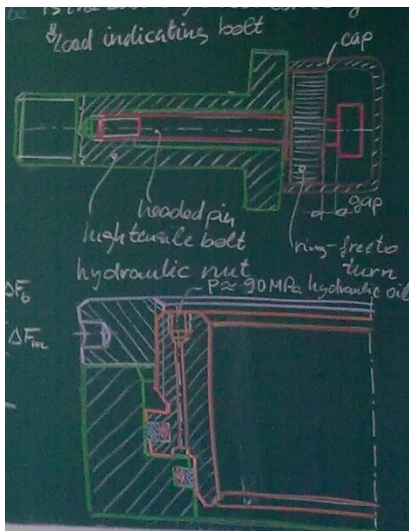 load indicating bolt
cap
gap
headed pin
high tensile bolt
ring-free to
turn
hydraulic nut
P≈90MPa hydraulic oil
ΔF_b
ΔF_m